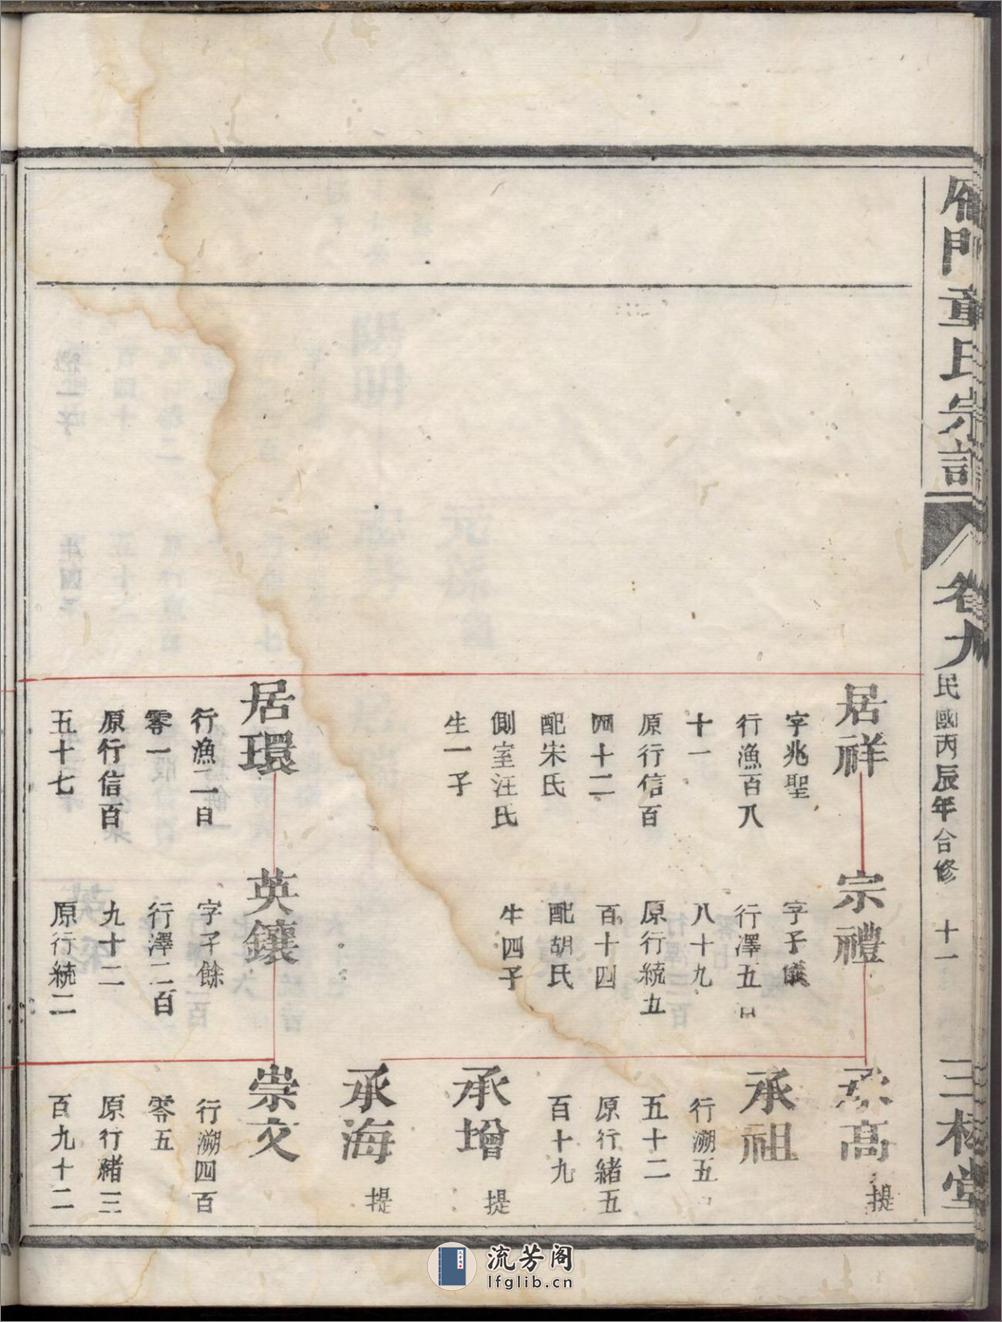 雁門童氏宗譜
卷九
民國丙辰年合修
十一
三
堂
居祥
字兆聖
行漁百八
十一
原行信百
四十二
配朱氏
側室汪氏
生一子
居環
行漁二百
零一
原行信百
五十七
宗禮
字子儀
行澤五百
八十九
原行統五
百十四
配胡氏
生四子
英鑲
字子餘
行澤二百
九十二
原行統二
承高
提
承祖
行溯五
五十二
原行緒五
百十九
承增
提
承海
提
崇文
行溯四百
零五
原行緒三
百九十二
流芳阁
lfglib.cn